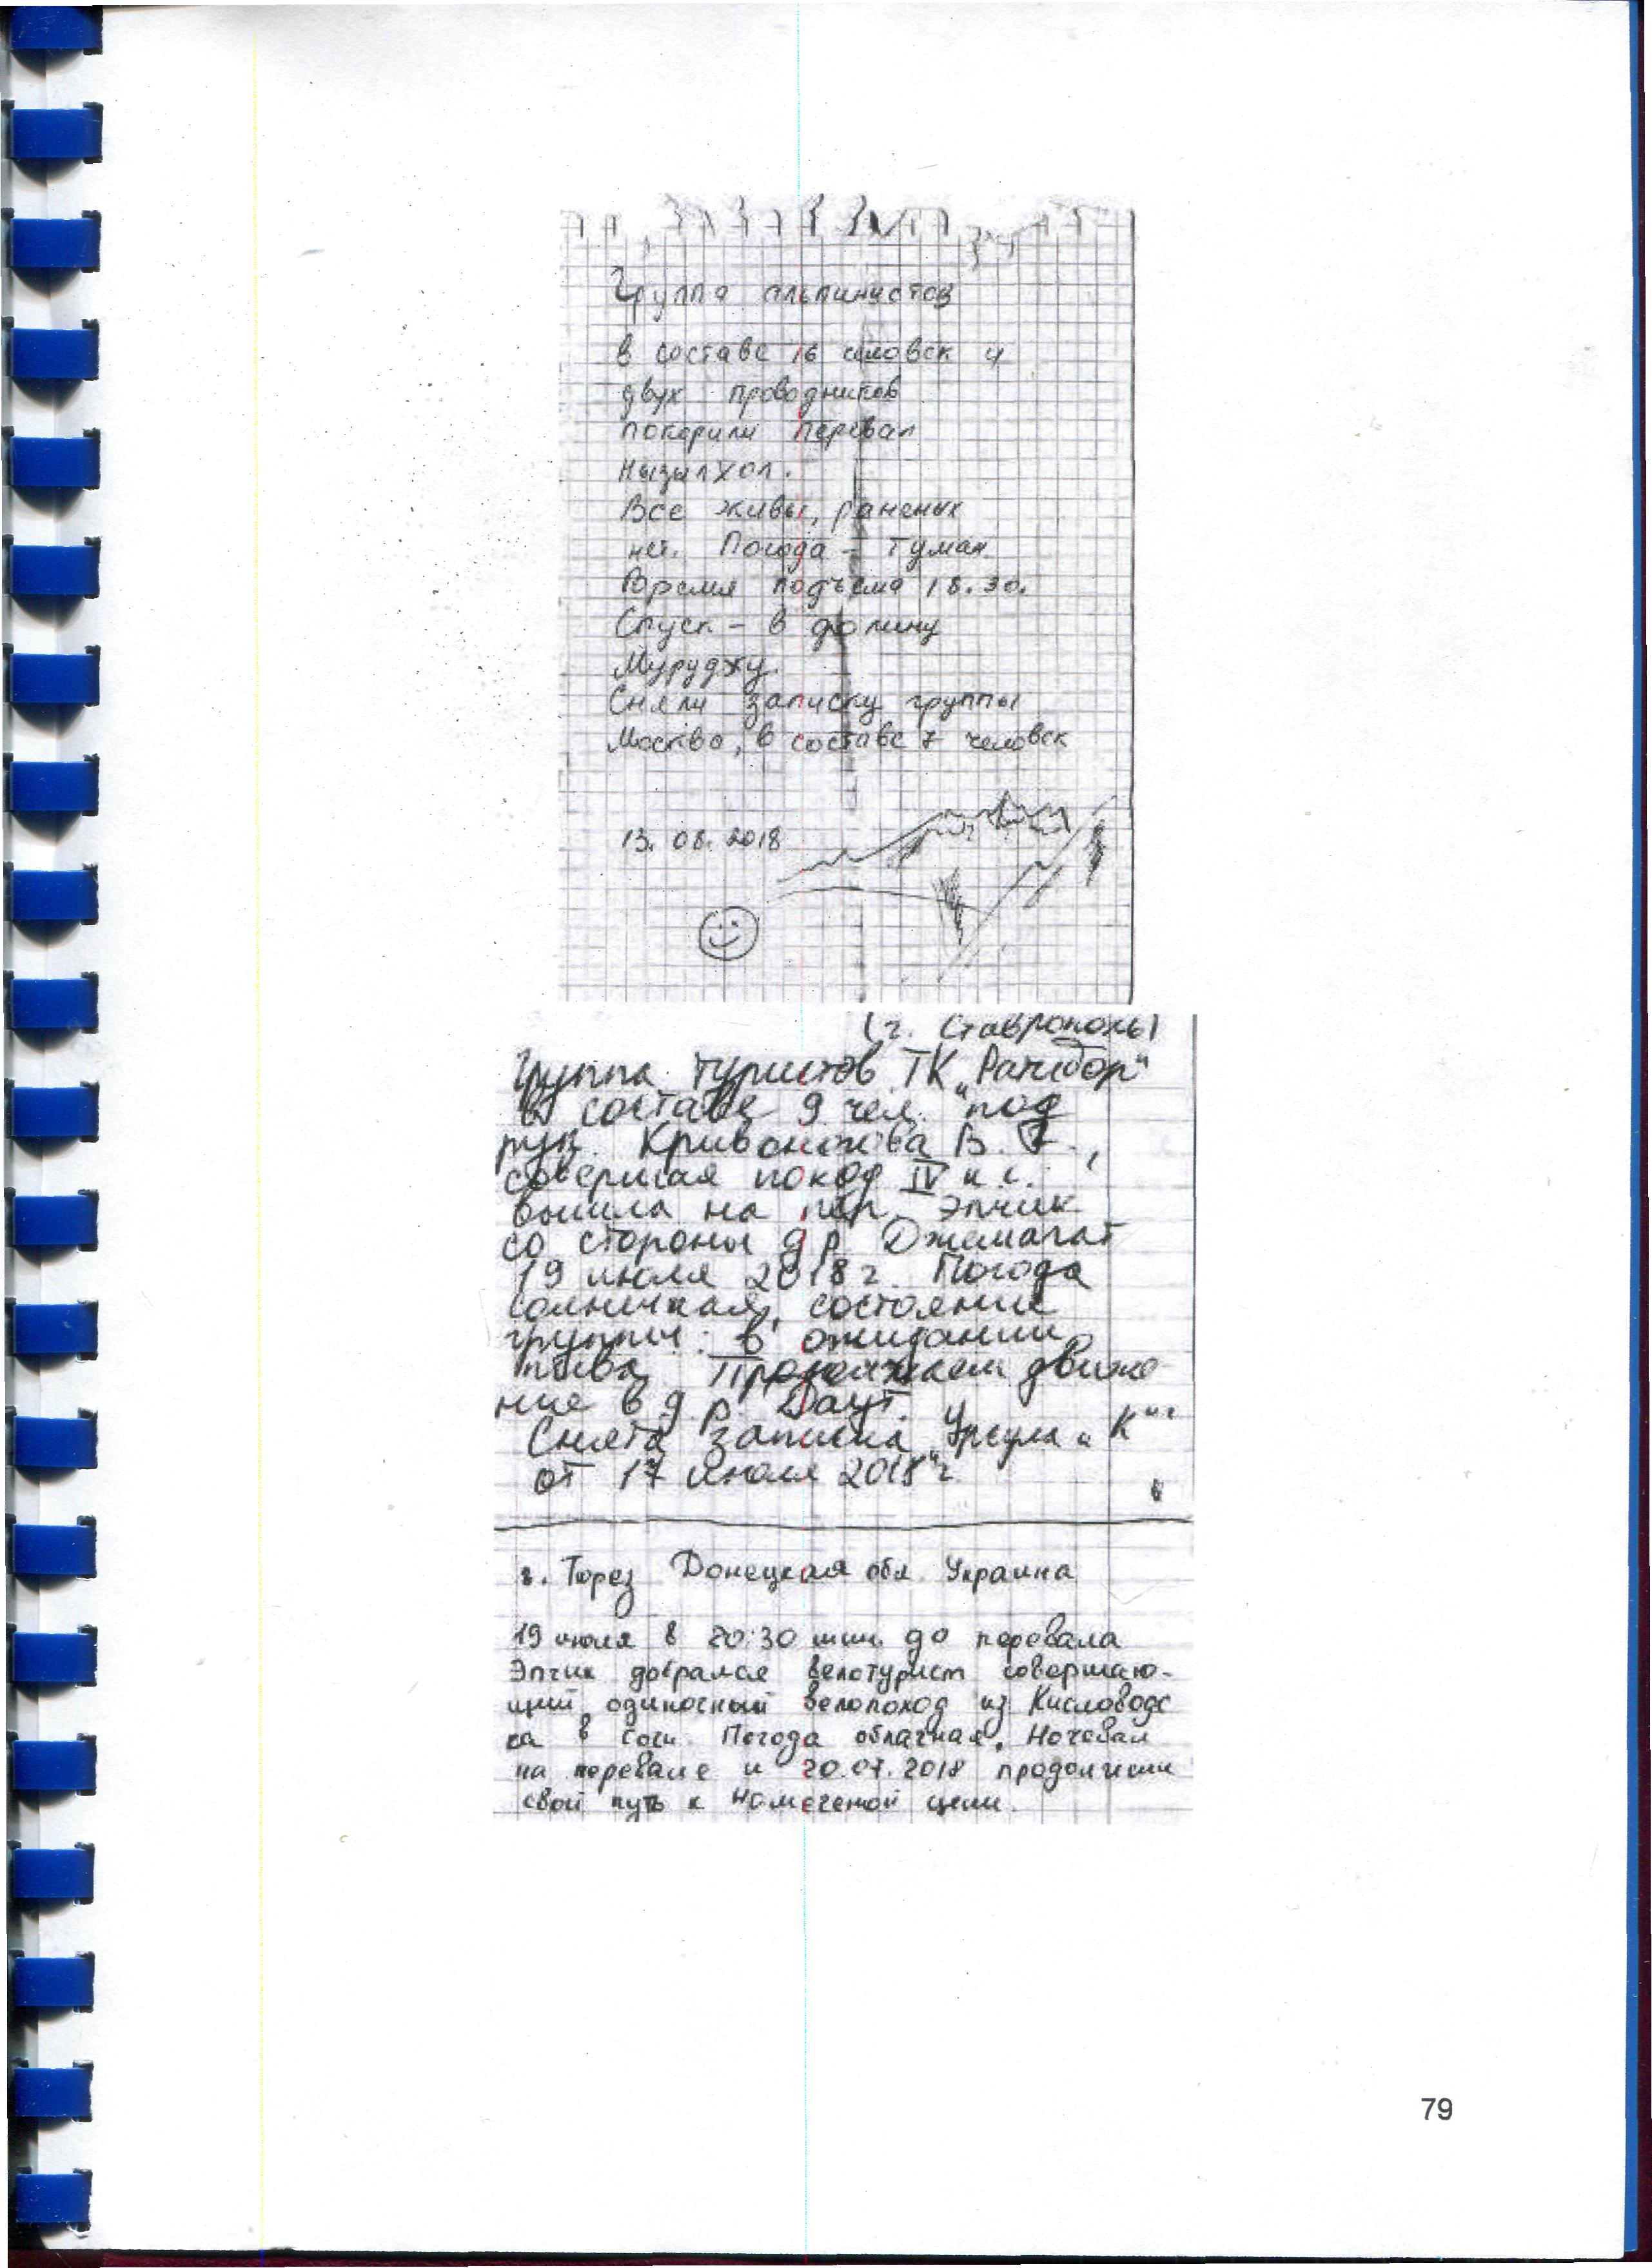 Группа альпинистов
в составе 16 человек и
двух проводников
покорили перевал
Кызылхол.
Все живы, раненых
нет. Погода - туман
Время подъема 18.30.
Спуск - в долину
Муруджу.
Сняли записку группы
Москва, в составе 7 человек
13. 08. 2018
(г. Ставрополь)
Группа туристов ТК „Ратибор"
в составе 9 чел. под
рук. Кривоносова В.
совершая поход IV к.с.
вышла на пер. Эпчик
со стороны д.р. Джемагат
19 июля 2018 г. Погода
солнечная, состояние
группы: в ожидании
пива. Продолжаем движе-
ние в д. р. Даут.
Снята записка „Урсула „К""
от 17 июля 2018 г.
г. Торез Донецкая обл. Украина
19 июля в 20:30 мин. до перевала
Эпчик добрался велотурист совершаю-
щий одиночный велопоход из Кисловодс
ка в Сочи. Погода облачная. Ночевал
на перевале и 20.07.2018 продолжил
свой путь к намеченой цели.
79